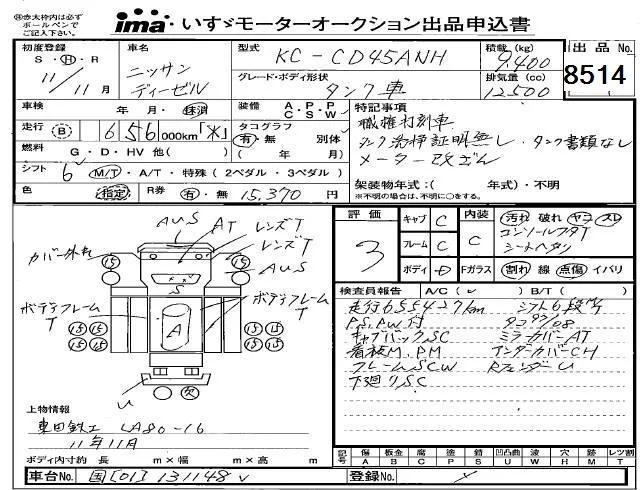 ※赤太枠内は必ず
ボールペンで
ご記入下さい。
ima・いすゞモーターオークション出品申込書
初度登録
S・H・R
11/11月
車名
ニッサン
ディーゼル
型式
KC-CD45ANH
グレード・ボディ形状
タンク車
積載 (kg)
9,400
排気量 (cc)
12500
出品No.
8514
車検
年 月・抹消
装備
A・P・P
C・S・W
特記事項
職権打刻車
タンク洗浄証明無し、タンク書類なし
メーター改ざん
走行 B 656000km「*」
タコグラフ
有・無 別体
( 年 月)
燃料 G・D・HV 他( )
シフト 6 M/T・A/T・特殊(2ペダル・3ペダル)
架装物年式:( 年式)・不明
※不明の場合は、不明に○をする。
色 指定 R券 有・無 15,370 円
評価
3
キャブ C
フレーム C
ボディ D
内装 C
汚れ 破れ ヤコ スレ
コンソールフタT
シートヘタリ
Fガラス 割れ 線 点傷 イバリ
AUS
AT
レンズT
レンズT
AUS
カバー外れ
S
ボデテフレーム
T
ボデテフレーム
T
A
15 15
15 15 15 15
15 15 15 15
U
欠
検査員報告 A/C( ✓ ) B/T( )
走行655427km シフト6段MT
P.S,P.W付 タコ97/08
キャブバックSC ミラーカバーAT
看板M.PM アンダーカバーCH
フレームSCW RフェンダーU
下廻りSC
上物情報
東田鉄工 LA80-16
11年11月
ボディ内寸約 長 m×幅 m×高 m
記号
傷 板金 腐 塗 錆 凹凸曲 波 穴 跡 レツ割
A B C P S U W H M T
車台No. 国[01]131148 v
登録No.